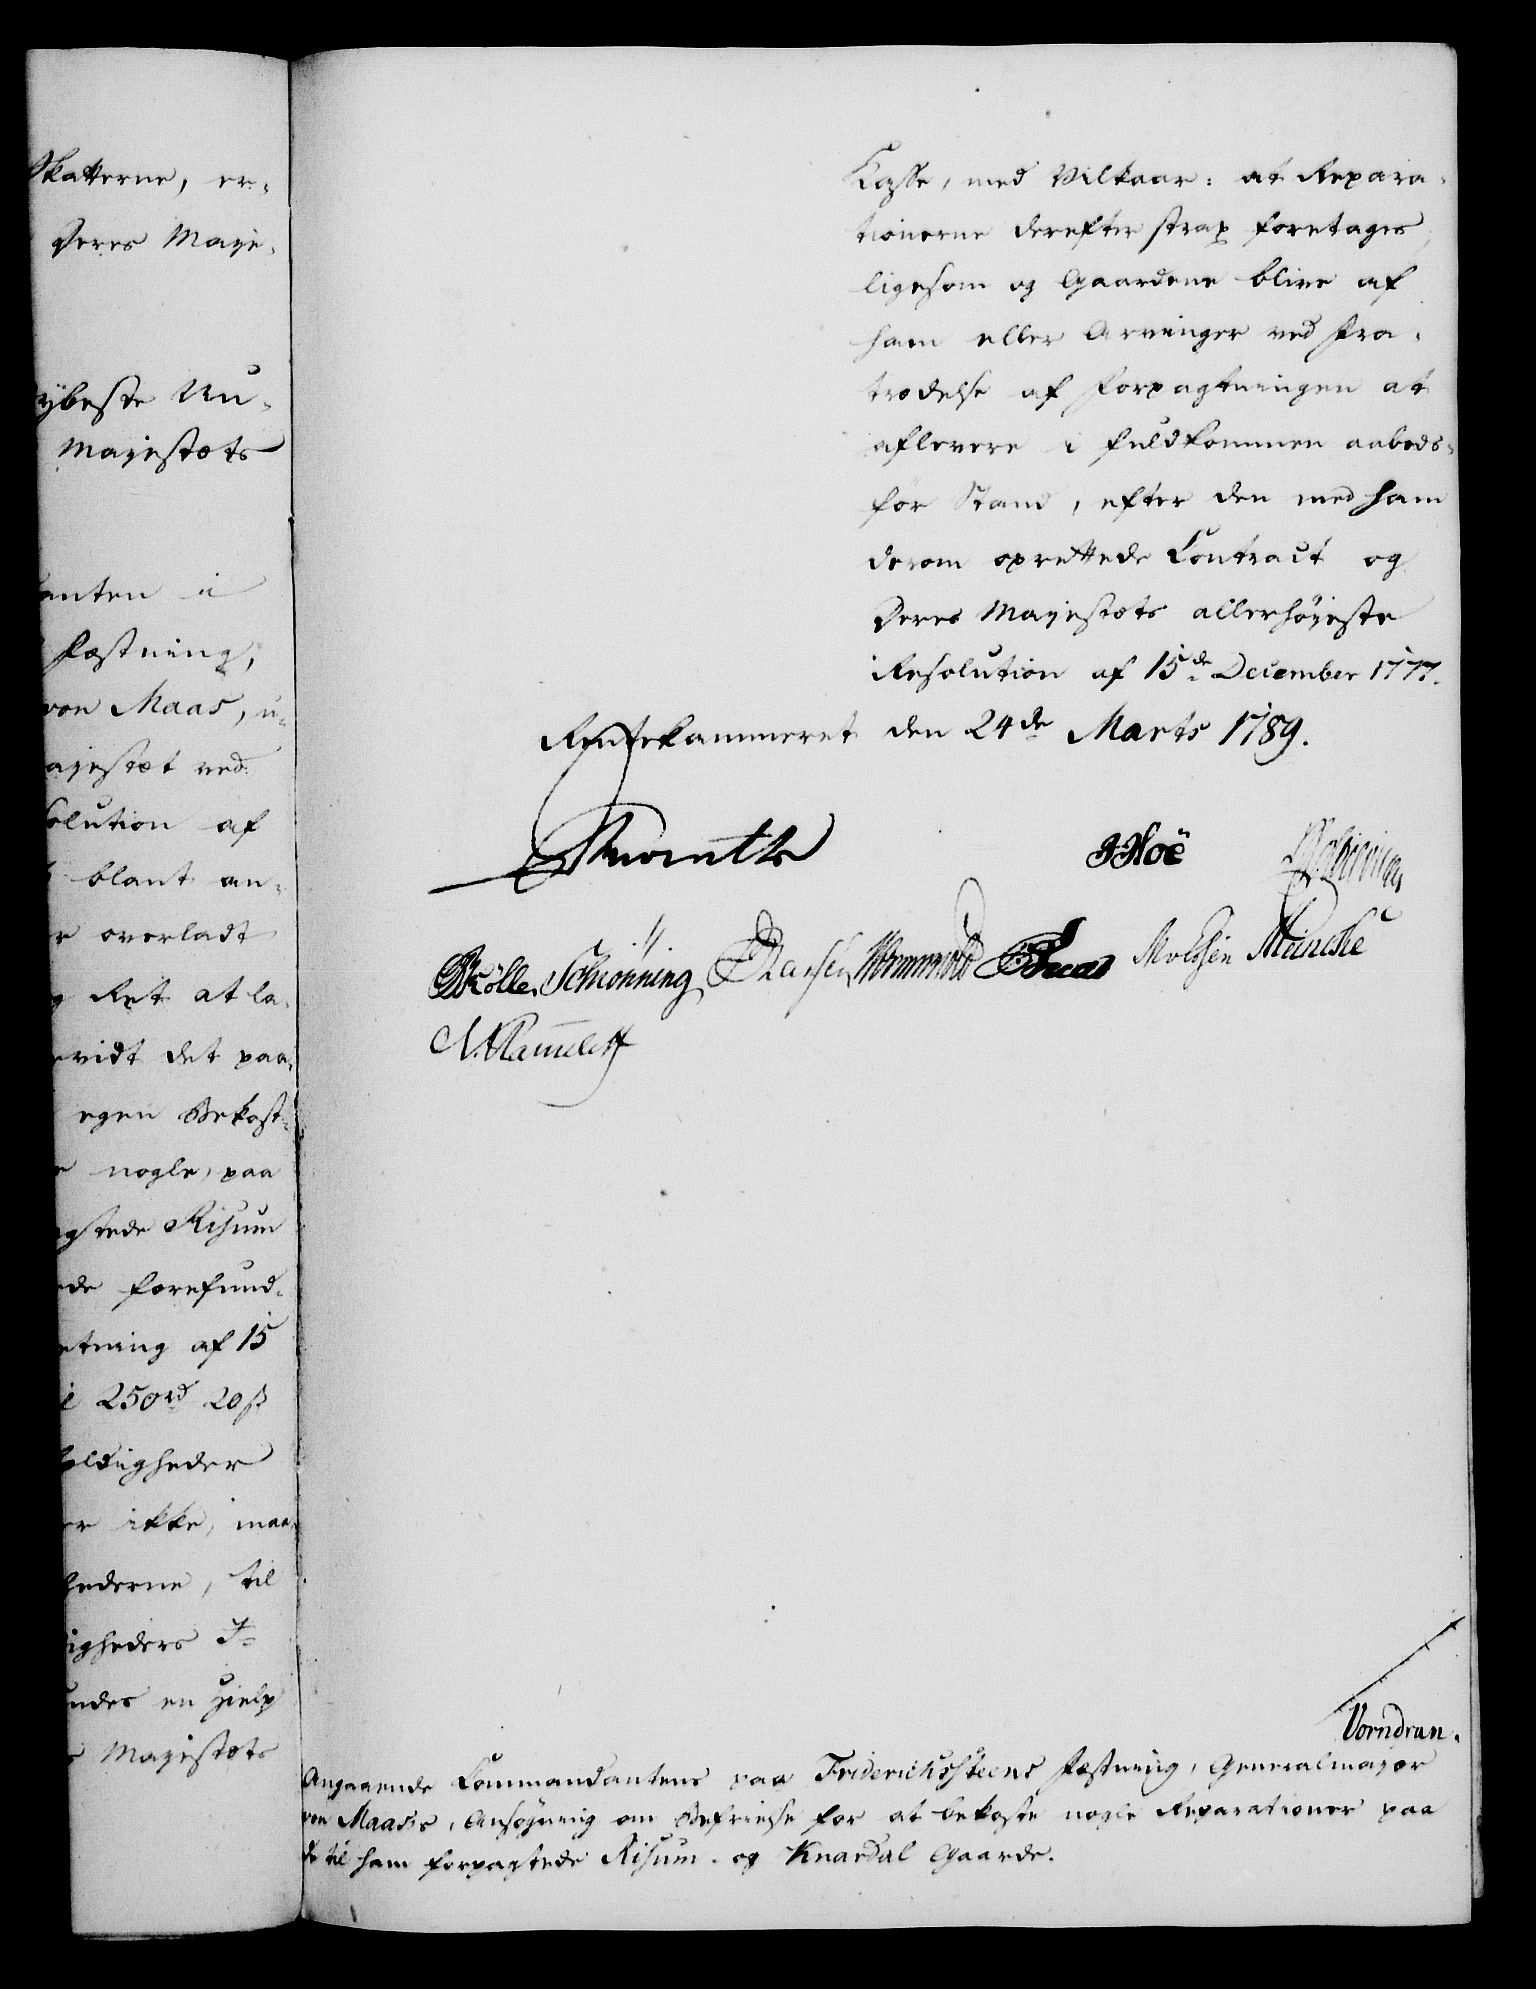 Skatterne, er-
Deres Maje-
dybeste Un-
Majestæts
anten i
Fæstning,
von Maas, u-
ajestæt ved
solution af
blant an-
r overladt
g Ret at la-
vidt det paa-
egen Bekost-
e nogle, paa
gtede Risum
de forefund-
etning af 15
i 250 rd 20 ß
oldigheder
er ikke, maa
hederne, til
igheders I-
undes en Hielp
s Majestæts
Kasse, med Vilkaar: at Repara-
tionerne derefter strax foretages,
ligesom og Gaardene blive af
ham eller Arvinger ved Fra-
trædelse af Forpagtningen at
aflevere i fuldkommen aabods-
før Stand, efter den med ham
derom oprettede Contract og
Deres Majestæts allerhøjeste
Resolution af 15de December 1777.
Rentekammeret den 24de Marts 1789.
JHoë
Müller Schiönning Hansen Wormwold
Meinche
Vorndran.
Angaaende Commandantens paa Friderichssteens Fæstning, Generalmajor
von Maas's, Ansøgning om Befrielse for at bekoste nogle Reparationer paa
de til ham forpagtede Risum- og Knardal Gaarde.